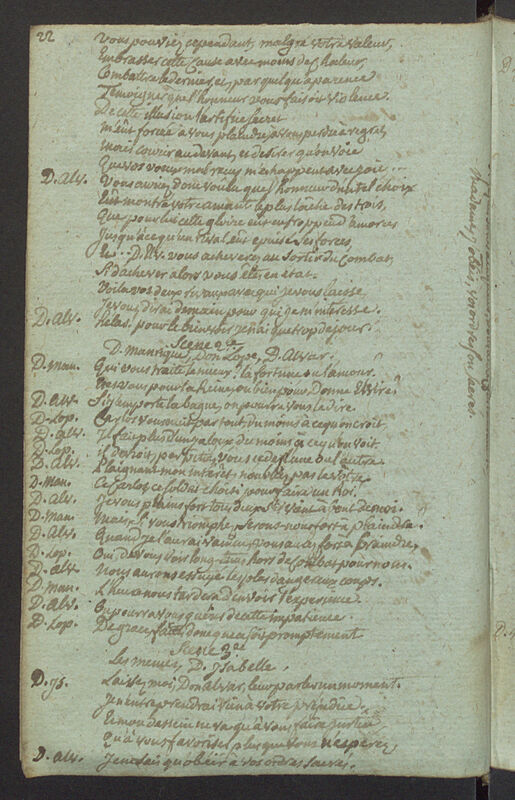 22
Vous pouviez cependant, malgré votre valeur,
Embrasser cette cause avec moins de chaleur,
Combattre le dernier, et par quelqu'aparence
Temoigner que l'honneur vous faisoit violence.
De cette illusion l'artifice secret
m'eut forcée à vous plaindre, à vous perdre à regret,
mais courir au devant, et desirer qu'on voie
Que vos vœux mal reçus m'echappent avec joie...
D. Alv. Vous auriez donc voulu que l'honneur d'un tel choix
Eut montré votre amant le plus lache des trois,
Que pour lui cette gloire eut eu trop peu d'amorces
Jusqu'à ce qu'un rival eut epuisé ses forces,
Que
D. vous acheverez au sortir du combat,
Si d'achever alors vous etes en etat.
Voila vos deux rivaux avec qui je vous laisse,
Je vous dirai demain pour qui je m'interesse.
D. Alv. Helas! pour le bien voir je n'ai que trop de jour.
Scene 2.de
D. Manrique, Don Lope, D. Alvar.
D. Man. Qui vous traite le mieux? la fortune ou l'amour.
Etes vous pour la Reine, ou bien pour Donne Elvire?
D. Alv. Si j'emporte la bague, on pourra vous le dire.
D. Lop. Carlos vous nuit par tout, du moins à ce qu'on croit.
D. Alv. Il fait plus d'un jaloux, du moins à ce qu'on voit.
D. Lop. Il devroit par pitié vous ceder l'une ou l'autre.
D. Alv. Plaignant mon intéret n'oubliez pas le votre.
D. Man. Ce Carlos, ce soldat choisi pour faire un Roi.
D. Alv. Je vous plains fort tous deux s'il vient à bout de moi.
D. Man. Mais s'il vous triomphe, serons nous fort à plaindre.
D. Alv. Quand je l'aurai vaincu, vous aurez fort à craindre.
D. Lop. Oui de vous voir long-tems hors de combat pour nous.
D. Alv. Nous aurons essuyé les plus dangereux coups.
D. Man. L'heure nous tardera d'en voir l'experience.
D. Alv. On pourra vous guérir de cette impatience.
D. Lop. De grace, faites donc que ce soit promptement
Scene 3.me
Les memes, D. Ysabelle.
D. Ys. Laissez moi, Don Alvar, leur parler un moment.
Je n'entreprendrai rien à votre préjudice.
Et mon dessein ne va qu'à vous faire justice
Qu'à vous favoriser plus que vous n'esperez,
D. Alv. Je ne sais qu'obéir à vos ordres sacrés.
Madame, j'obéis, vos ordres sont sacrés.